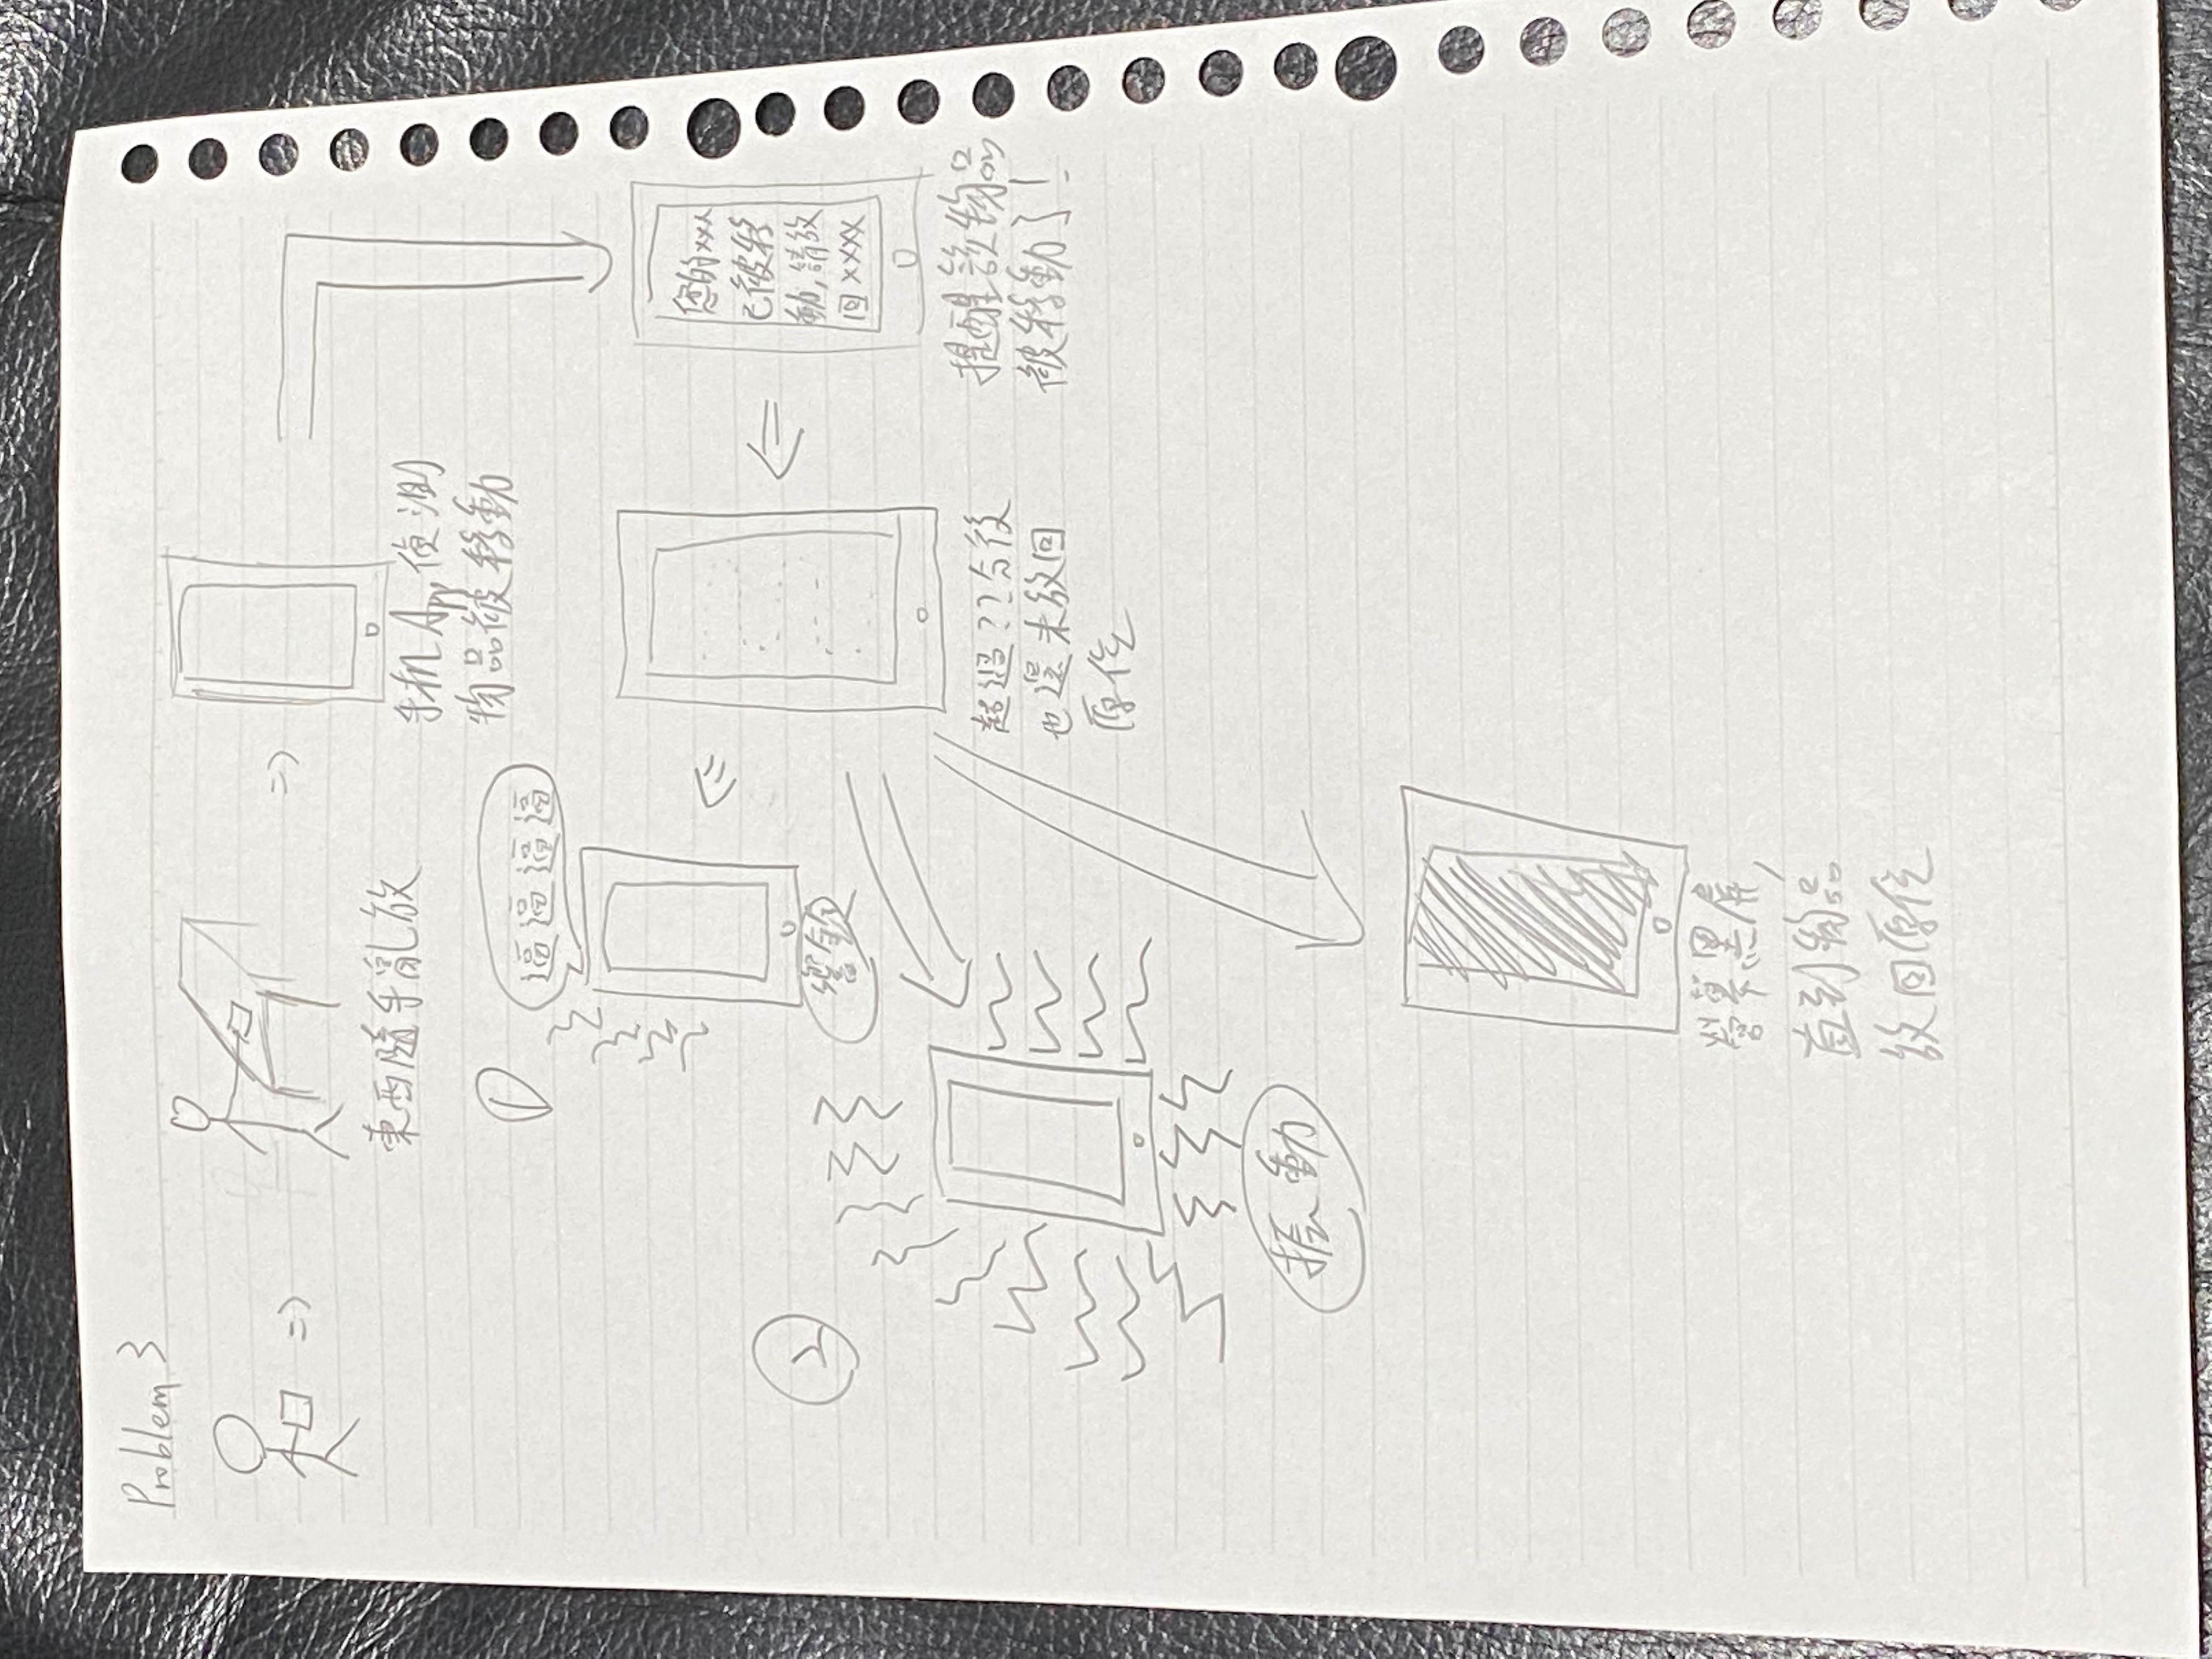 Problem 3
東西隨手亂放
手机App偵測
物品被移動
您的xxx
已被移
動,請放
回xxxx
提醒該物品
被移動了!
超過??分後
也還未放回
原位
①
逼逼逼逼
響鈴
②
振動
螢幕黑屏,
直到物品
放回原位